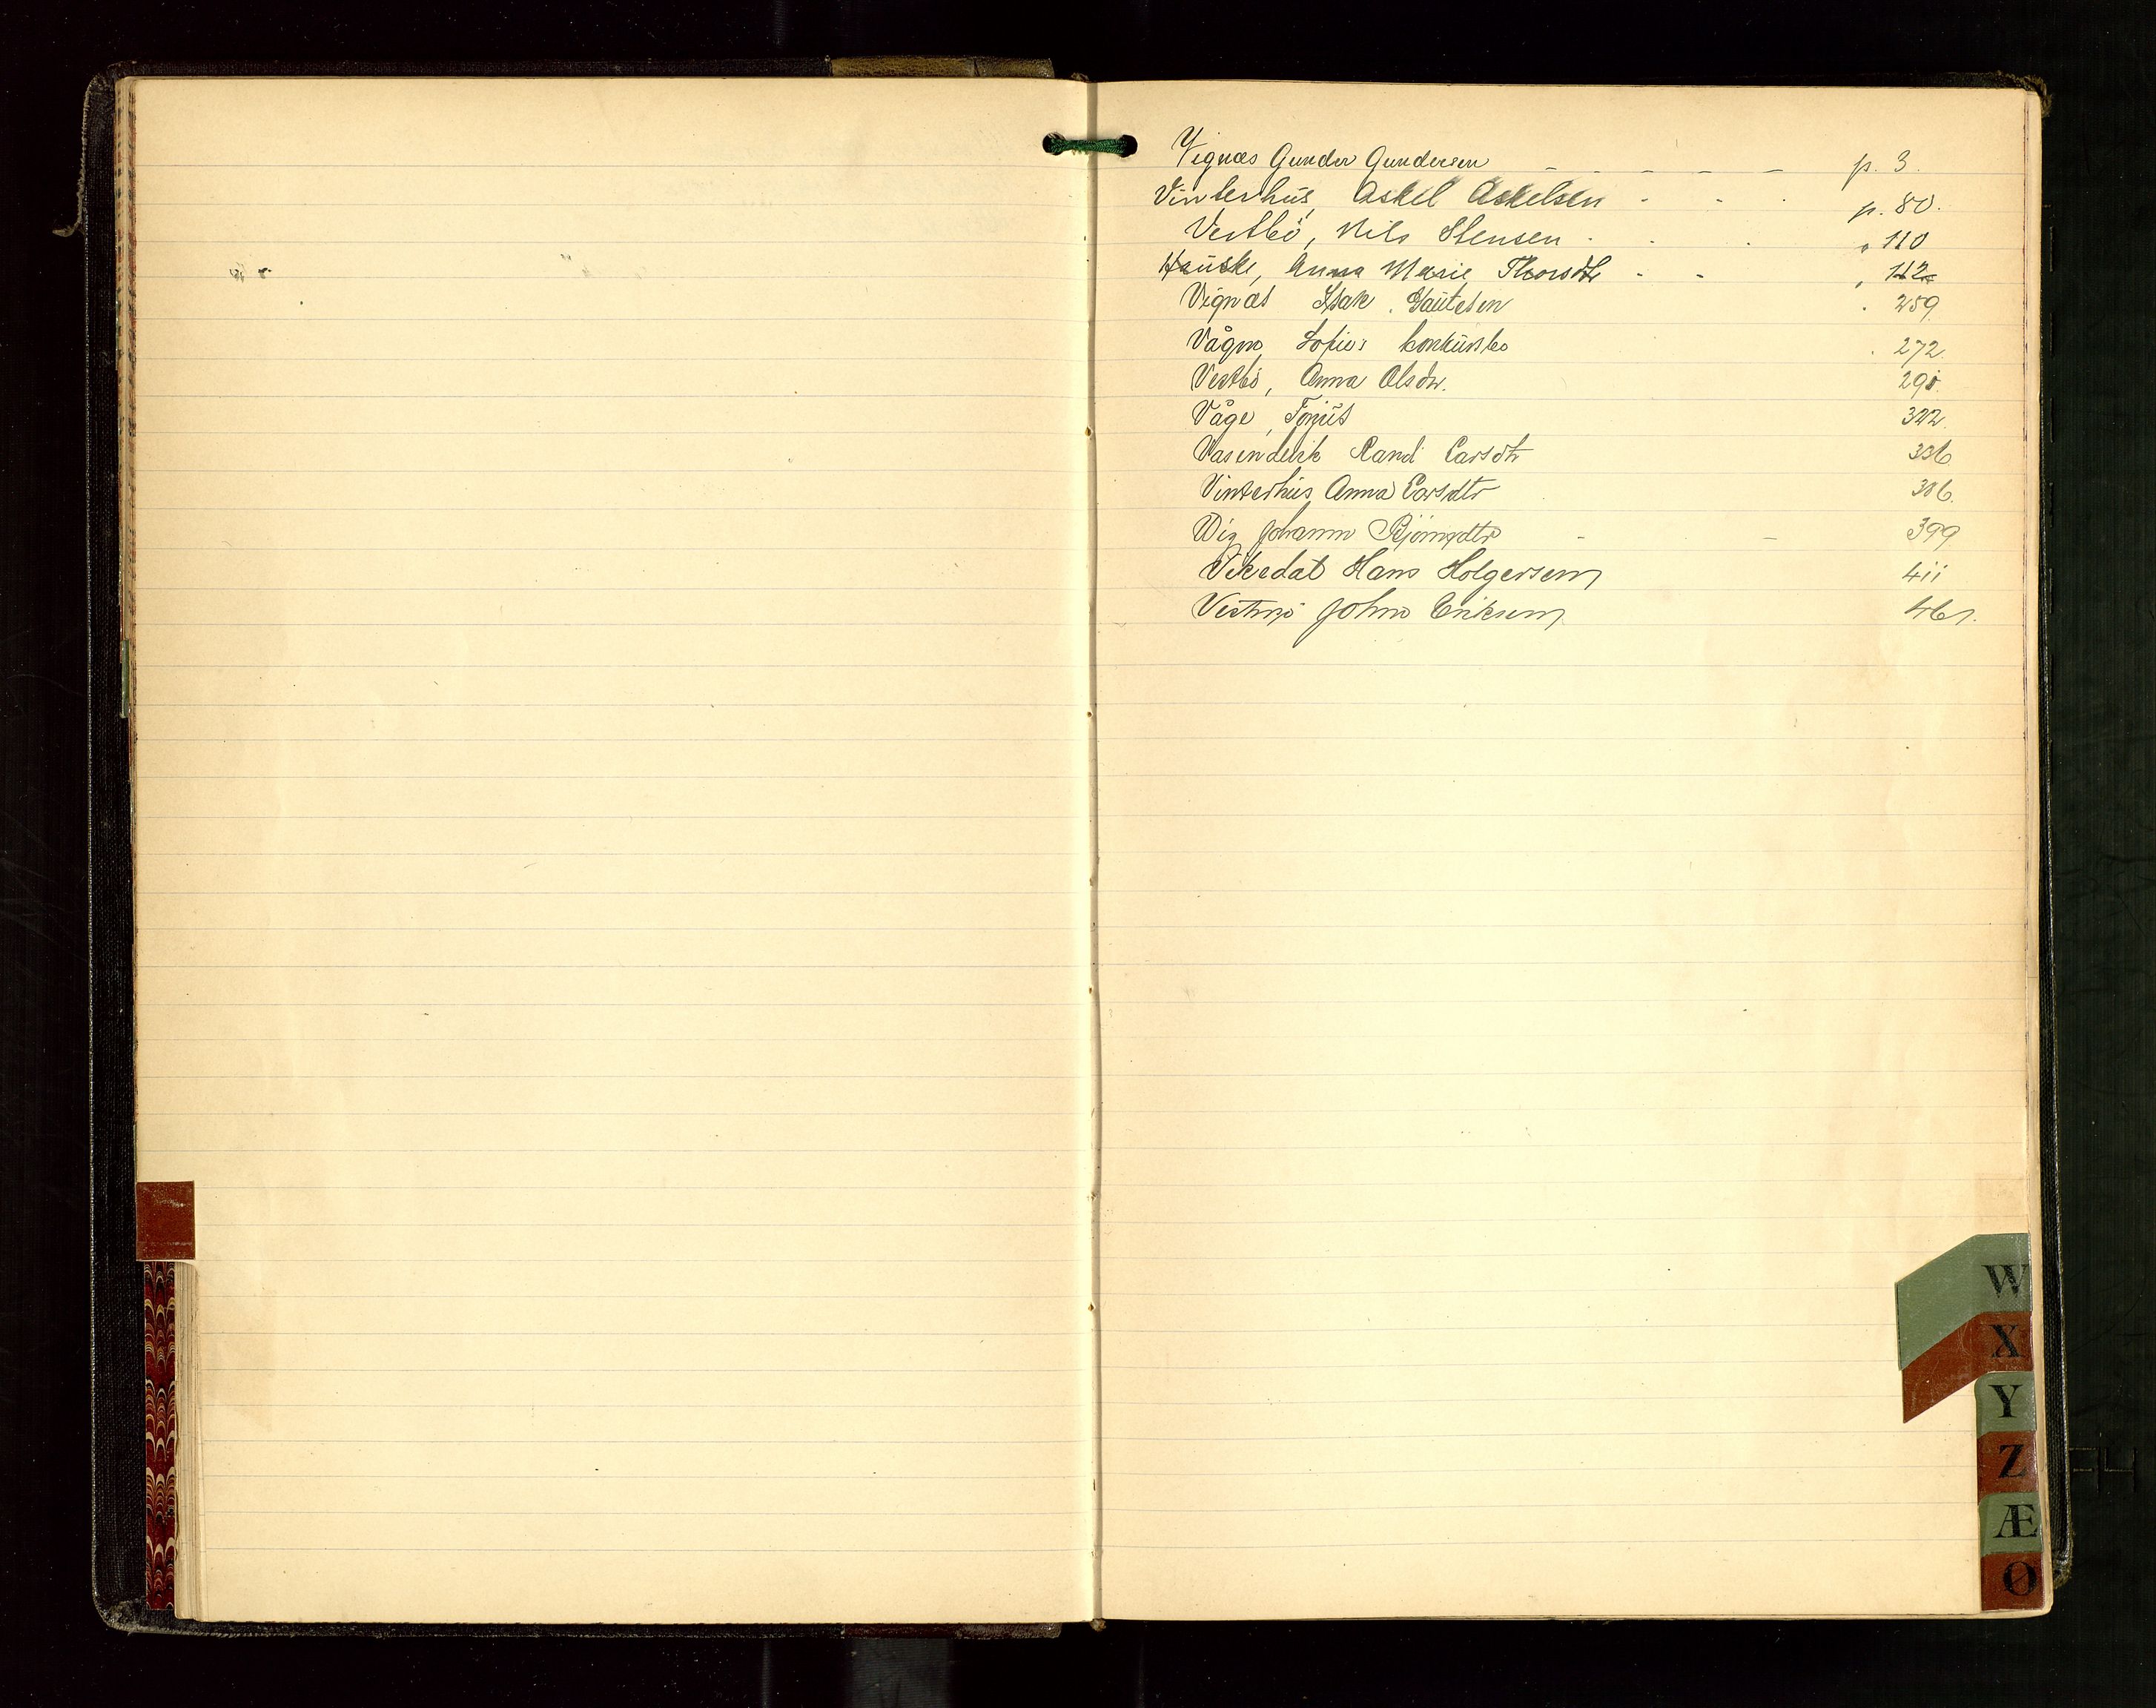 Vignæs Gunder Gundersen - - - - - p. 3.
Vinterhus, Askel Askelsen - - - p. 80.
Vestbö, Nils Stensen - - - " 110
Hauske, Anna Marie Thorsdtr - - " 112
Vignæs Isak Gautesen " 259
Vågen Sofies konkursbo " 272.
Vestbö, Anna Olsdtr. 291.
Våge, 322.
Vasendvik Randi Larsdtr 336.
Vinterhus Anna Larsdtr 386.
Vig Johanne Björnsdtr - - 399
Vikedal Hans Holgersen 411
John Eriksen 461.
W
X
Y
Z
Æ
Ø